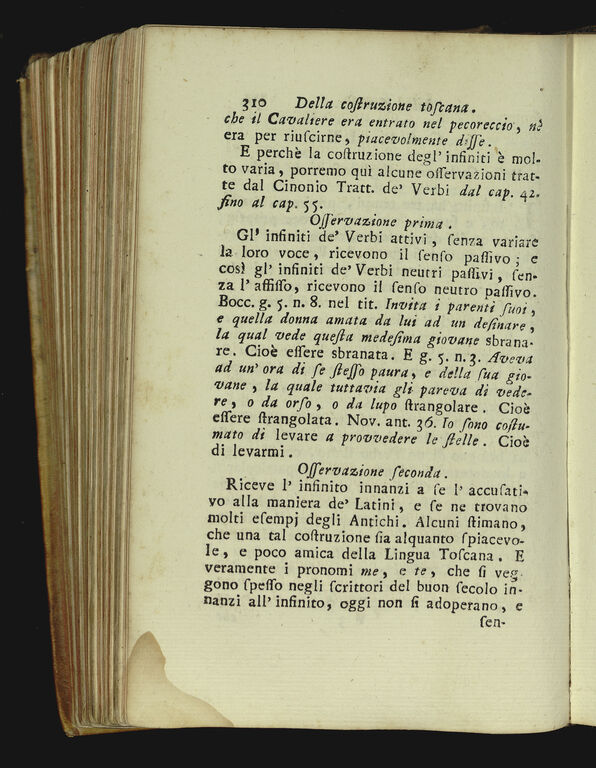 310 Della coſtruzione toſcana.
che il Cavaliere era entrato nel pecoreccio, nè
era per riuſcirne, piacevolmente diſſe.
E perchè la coſtruzione degl' infiniti è mol-
to varia, porremo quì alcune oſſervazioni trat-
te dal Cinonio Tratt. de' Verbi dal cap. 42.
fino al cap. 55.
Oſſervazione prima.
Gl' infiniti de' Verbi attivi, ſenza variare
la loro voce, ricevono il ſenſo paſſivo; e
così gl' infiniti de' Verbi neutri paſſivi, ſen-
za l' affiſſo, ricevono il ſenſo neutro paſſivo.
Bocc. g. 5. n. 8. nel tit. Invita i parenti ſuoi,
e quella donna amata da lui ad un deſinare,
la qual vede queſta medeſima giovane sbrana-
re. Cioè eſſere sbranata. E g. 5. n. 3. Aveva
ad un' ora di ſe ſteſſo paura, e della ſua gio-
vane, la quale tuttavia gli pareva di vede-
re, o da orſo, o da lupo ſtrangolare. Cioè
eſſere ſtrangolata. Nov. ant. 36. Io ſono coſtu-
mato di levare a provvedere le ſtelle. Cioè
di levarmi.
Oſſervazione ſeconda.
Riceve l' infinito innanzi a ſe l' accuſati-
vo alla maniera de' Latini, e ſe ne trovano
molti eſempj degli Antichi. Alcuni ſtimano,
che una tal coſtruzione ſia alquanto ſpiacevo-
le, e poco amica della Lingua Toſcana. E
veramente i pronomi me, e te, che ſi veg-
gono ſpeſſo negli ſcrittori del buon ſecolo in-
nanzi all' infinito, oggi non ſi adoperano, e
ſen-